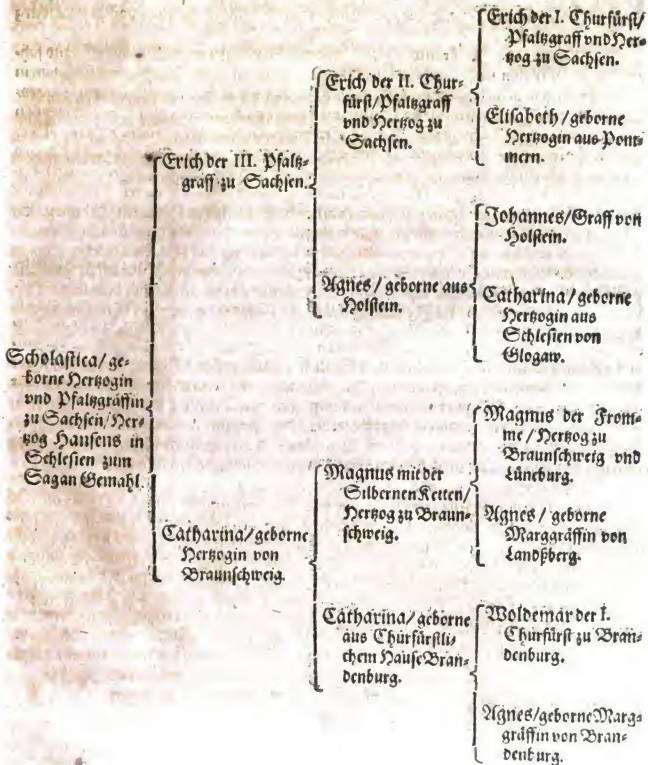 Scholastica/ ge=
borne Hertzogin
vnd Pfaltzgräffin
zu Sachsen/Her=
tzog Hansens in
Schlesien zum
Sagan Gemahl.
Erich der III. Pfaltz=
graff zu Sachsen.
Catharina/geborne
Hertzogin von
Braunschweig.
Erich der II. Chur=
fürst/Pfaltzgraff
vnd Hertzog zu
Sachsen.
Agnes/ geborne aus
Holstein.
Magnus mit der
Silbernen Ketten/
Hertzog zu Braun=
schweig.
Catharina/geborne
aus Churfürstli=
chem Hause Bran=
denburg.
Erich der I. Churfürst/
Pfaltzgraff vnd Her=
tzog zu Sachsen.
Elisabeth/geborne
Hertzogin aus Pom=
mern.
Johannes/Graff von
Holstein.
Catharina/ geborne
Hertzogin aus
Schlesien von
Glogaw.
Magnus der From=
me/Hertzog zu
Braunschweig vnd
Lüneburg.
Agnes/ geborne
Marggräffin von
Landßberg.
Woldemar der I.
Churfürst zu Bran=
denburg.
Agnes/geborne Marg=
gräffin von Bran=
denburg.